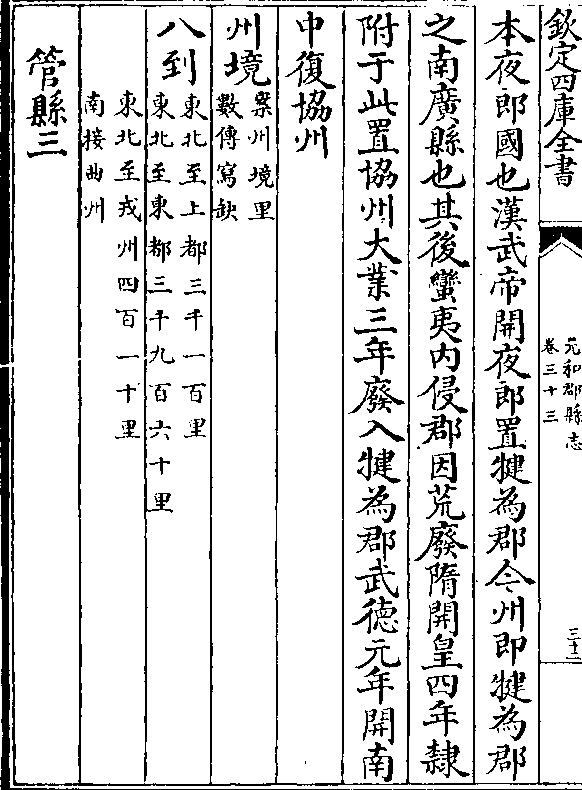 欽定四庫全書
元和郡縣志
卷三十三
三十二
本夜郎國也漢武帝開夜郎置犍為郡今州即犍為郡
之南廣縣也其後蠻夷内侵郡因荒廢隋開皇四年隸
附于此置協州大業三年廢入犍為郡武德元年開南
中復協州
州境
案州境里
數傳寫缺
八到
東北至上都三千一百里
東北至東都三千九百六十里
東北至戎州四百一十里
南接曲州
管縣三